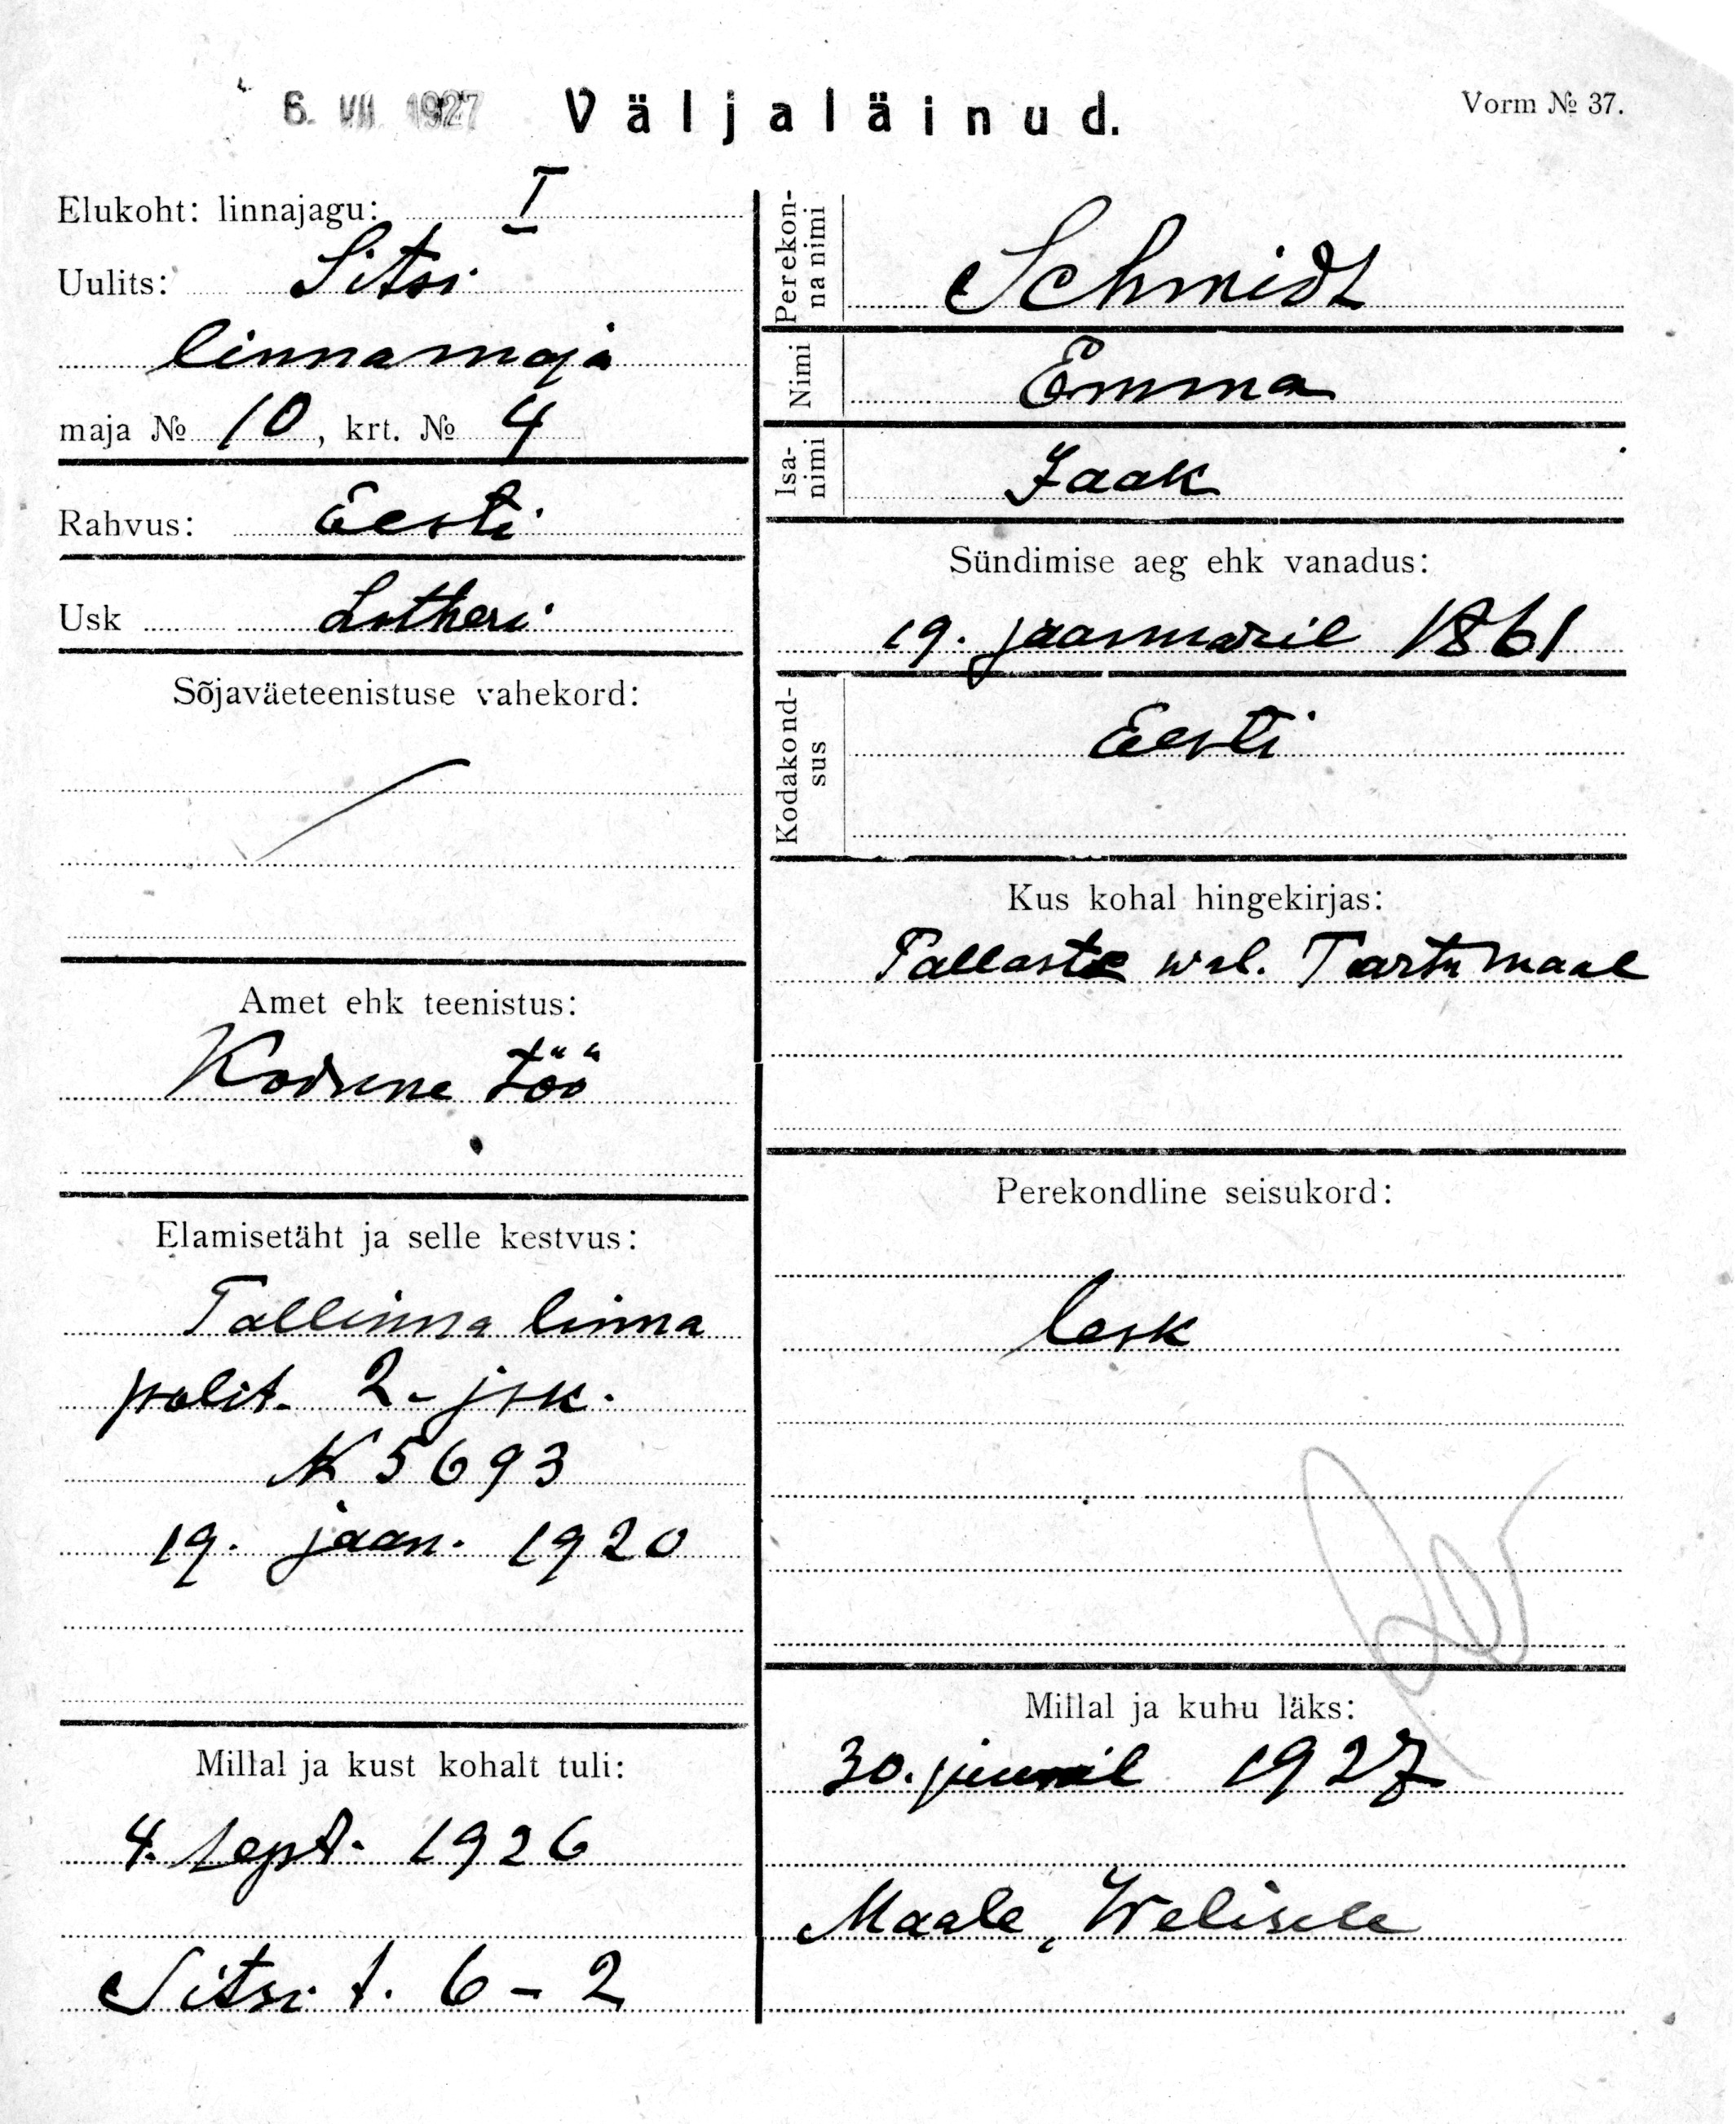 6. VII 1927
Väljaläinud.
Vorm № 37.
Elukoht: linnajagu: I
Uulits: Sitsi
linnamaja
maja № 10, krt. № 4
Rahvus: Eesti
Usk Lutheri
Sõjaväeteenistuse vahekord:
Amet ehk teenistus:
Kodune töö
Elamisetäht ja selle kestvus:
Tallinna linna
polit. 2-jsk.
N 5693
19. jaan. 1920
Millal ja kust kohalt tuli:
4. sept. 1926
Sitsi t. 6-2
Perekon-
na nimi
Schmidt
Nimi
Emma
Isa-
nimi
Jaak
Sündimise aeg ehk vanadus:
19. jaanuaril 1861
Kodakond-
sus
Eesti
Kus kohal hingekirjas:
Pallaste wal. Tartumaal
Perekondline seisukord:
lesk
Millal ja kuhu läks:
30. juunil 1927
Maale, Welisele